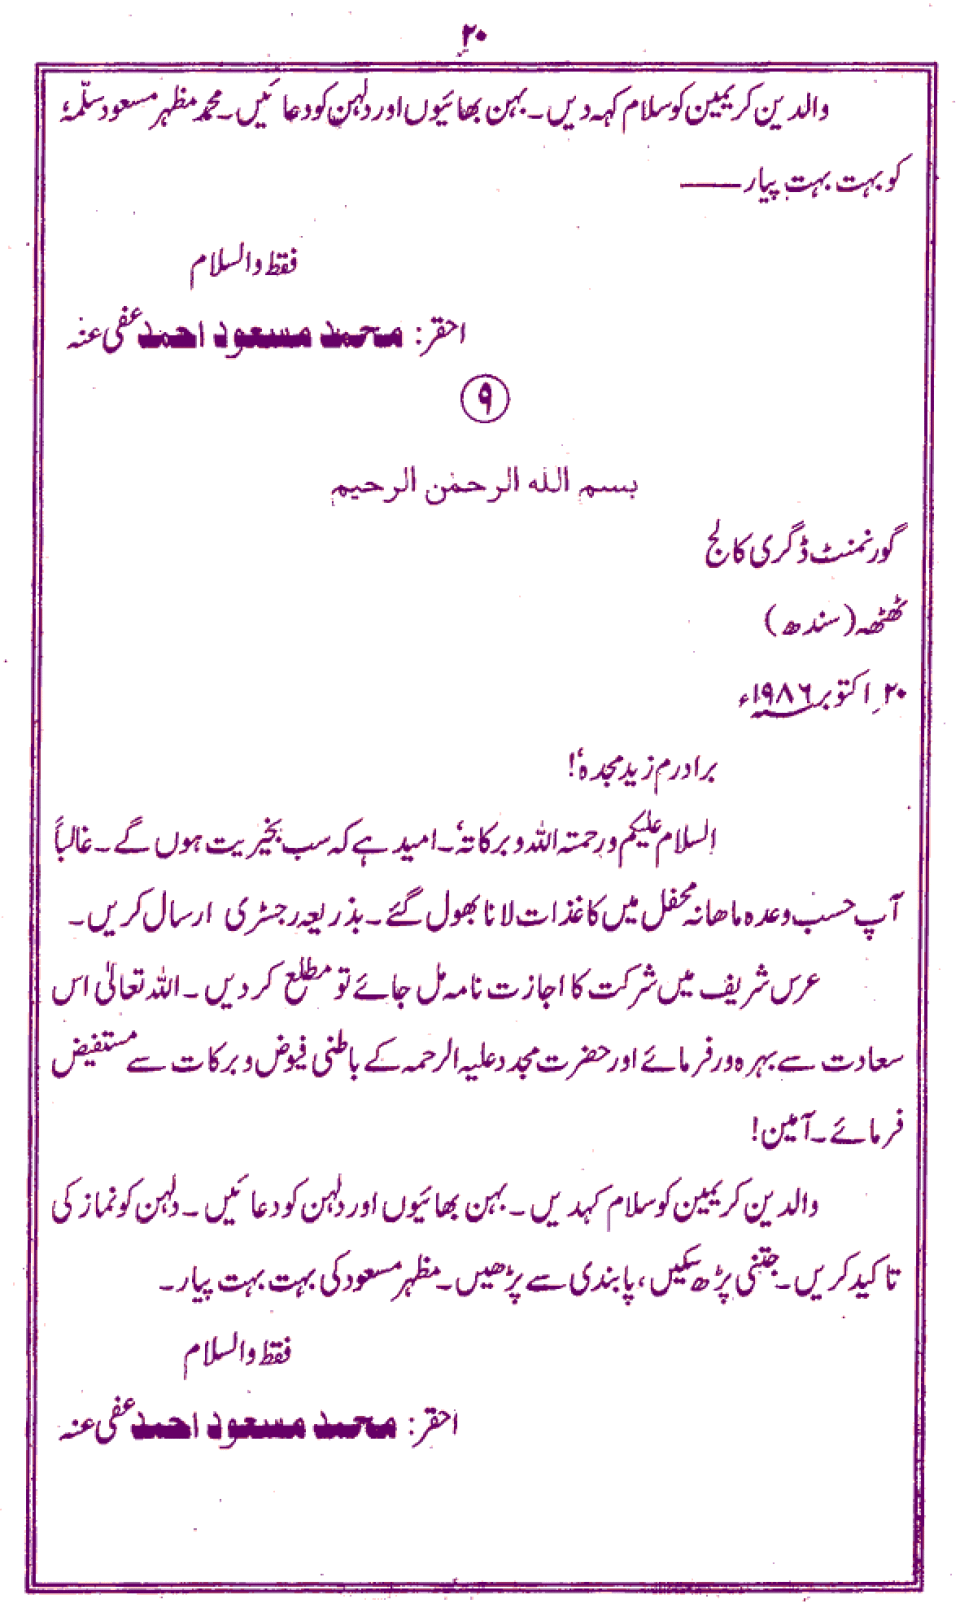 ۲۰
والدین کریمین کو سلام کہہ دیں۔ بہن بھائیوں اور دلہن کو دعائیں۔ محمد مظہر مسعود سلّمہٗ
کو بہت بہت پیار ——
فقط والسلام
احقر: محمد مسعود احمد عفی عنہ
۹
بسم الله الرحمٰن الرحيم
گورنمنٹ ڈگری کالج
ٹھٹھہ (سندھ)
۲۰؍ اکتوبر ۱۹۸۶ء
برادرم زید مجدہٗ!
السلام علیکم ورحمتہ اللہ وبرکاتہٗ۔ امید ہے کہ سب بخیریت ہوں گے۔ غالباً
آپ حسب وعدہ ماھانہ محفل میں کاغذات لانا بھول گئے۔ بذریعہ رجسٹری ارسال کریں۔
عرس شریف میں شرکت کا اجازت نامہ مل جائے تو مطلع کر دیں۔ اللہ تعالیٰ اس
سعادت سے بہرہ ور فرمائے اور حضرت مجدد علیہ الرحمہ کے باطنی فیوض و برکات سے مستفیض
فرمائے۔ آمین!
والدین کریمین کو سلام کہدیں۔ بہن بھائیوں اور دلہن کو دعائیں۔ دلہن کو نماز کی
تاکید کریں۔ جتنی پڑھ سکیں، پابندی سے پڑھیں۔ مظہر مسعود کی بہت بہت پیار۔
فقط والسلام
احقر: محمد مسعود احمد عفی عنہ